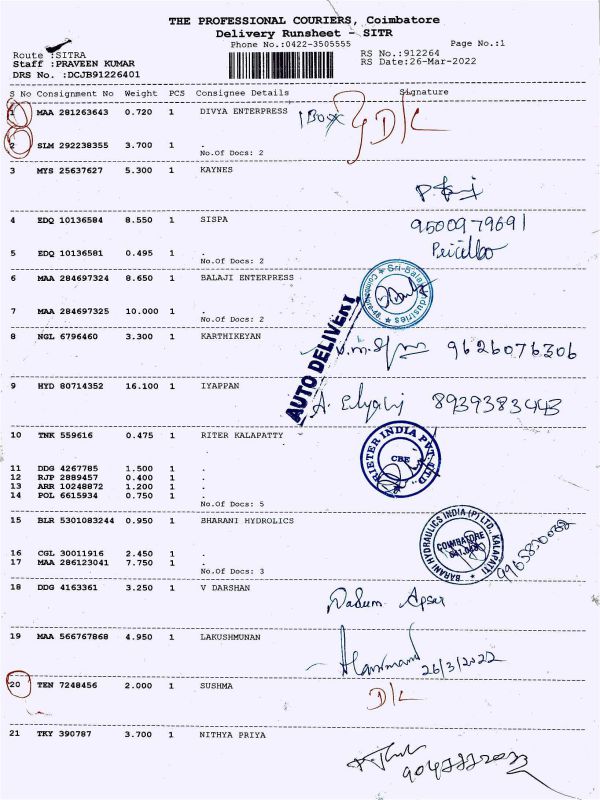 THE PROFESSIONAL COURIERS, Coimbatore
Delivery Runsheet - SITR
Phone No.:0422-3505555 Page No.:1
Route :SITRA RS No.:912264
Staff :PRAVEEN KUMAR RS Date:26-Mar-2022
DRS No. :DCJB91226401
S No Consignment No Weight PCS Consignee Details Signature
1 MAA 281263643 0.720 1 DIVYA ENTERPRESS 1 Box D/L
2 SLM 292238355 3.700 1 .
No.Of Docs: 2
3 MYS 25637627 5.300 1 KAYNES
4 EDQ 10136584 8.550 1 SISPA 9500979691
5 EDQ 10136581 0.495 1 .
No.Of Docs: 2
6 MAA 284697324 8.650 1 BALAJI ENTERPRESS
Sri Balaji Industries
7 MAA 284697325 10.000 1 .
No.Of Docs: 2
AUTO DELIVERY
8 NGL 6796460 3.300 1 KARTHIKEYAN 9626076306
9 HYD 80714352 16.100 1 IYAPPAN 8939383443
10 TNK 559616 0.475 1 RITER KALAPATTY
RIETER INDIA PVT. LTD.
CBE
11 DDG 4267785 1.500 1 .
12 RJP 2889457 0.400 1 .
13 ARR 10248872 1.200 1 .
14 POL 6615934 0.750 1 .
No.Of Docs: 5
15 BLR 5301083244 0.950 1 BHARANI HYDROLICS
BARANI HYDRAULICS INDIA (P) LTD., KALAPATTI
COIMBATORE
16 CGL 30011916 2.450 1 .
17 MAA 286123041 7.750 1 .
No.Of Docs: 3
18 DDG 4163361 3.250 1 V DARSHAN
19 MAA 566767868 4.950 1 LAKUSHMUNAN
26/3/2022
20 TEN 7248456 2.000 1 SUSHMA D/L
21 TKY 390787 3.700 1 NITHYA PRIYA